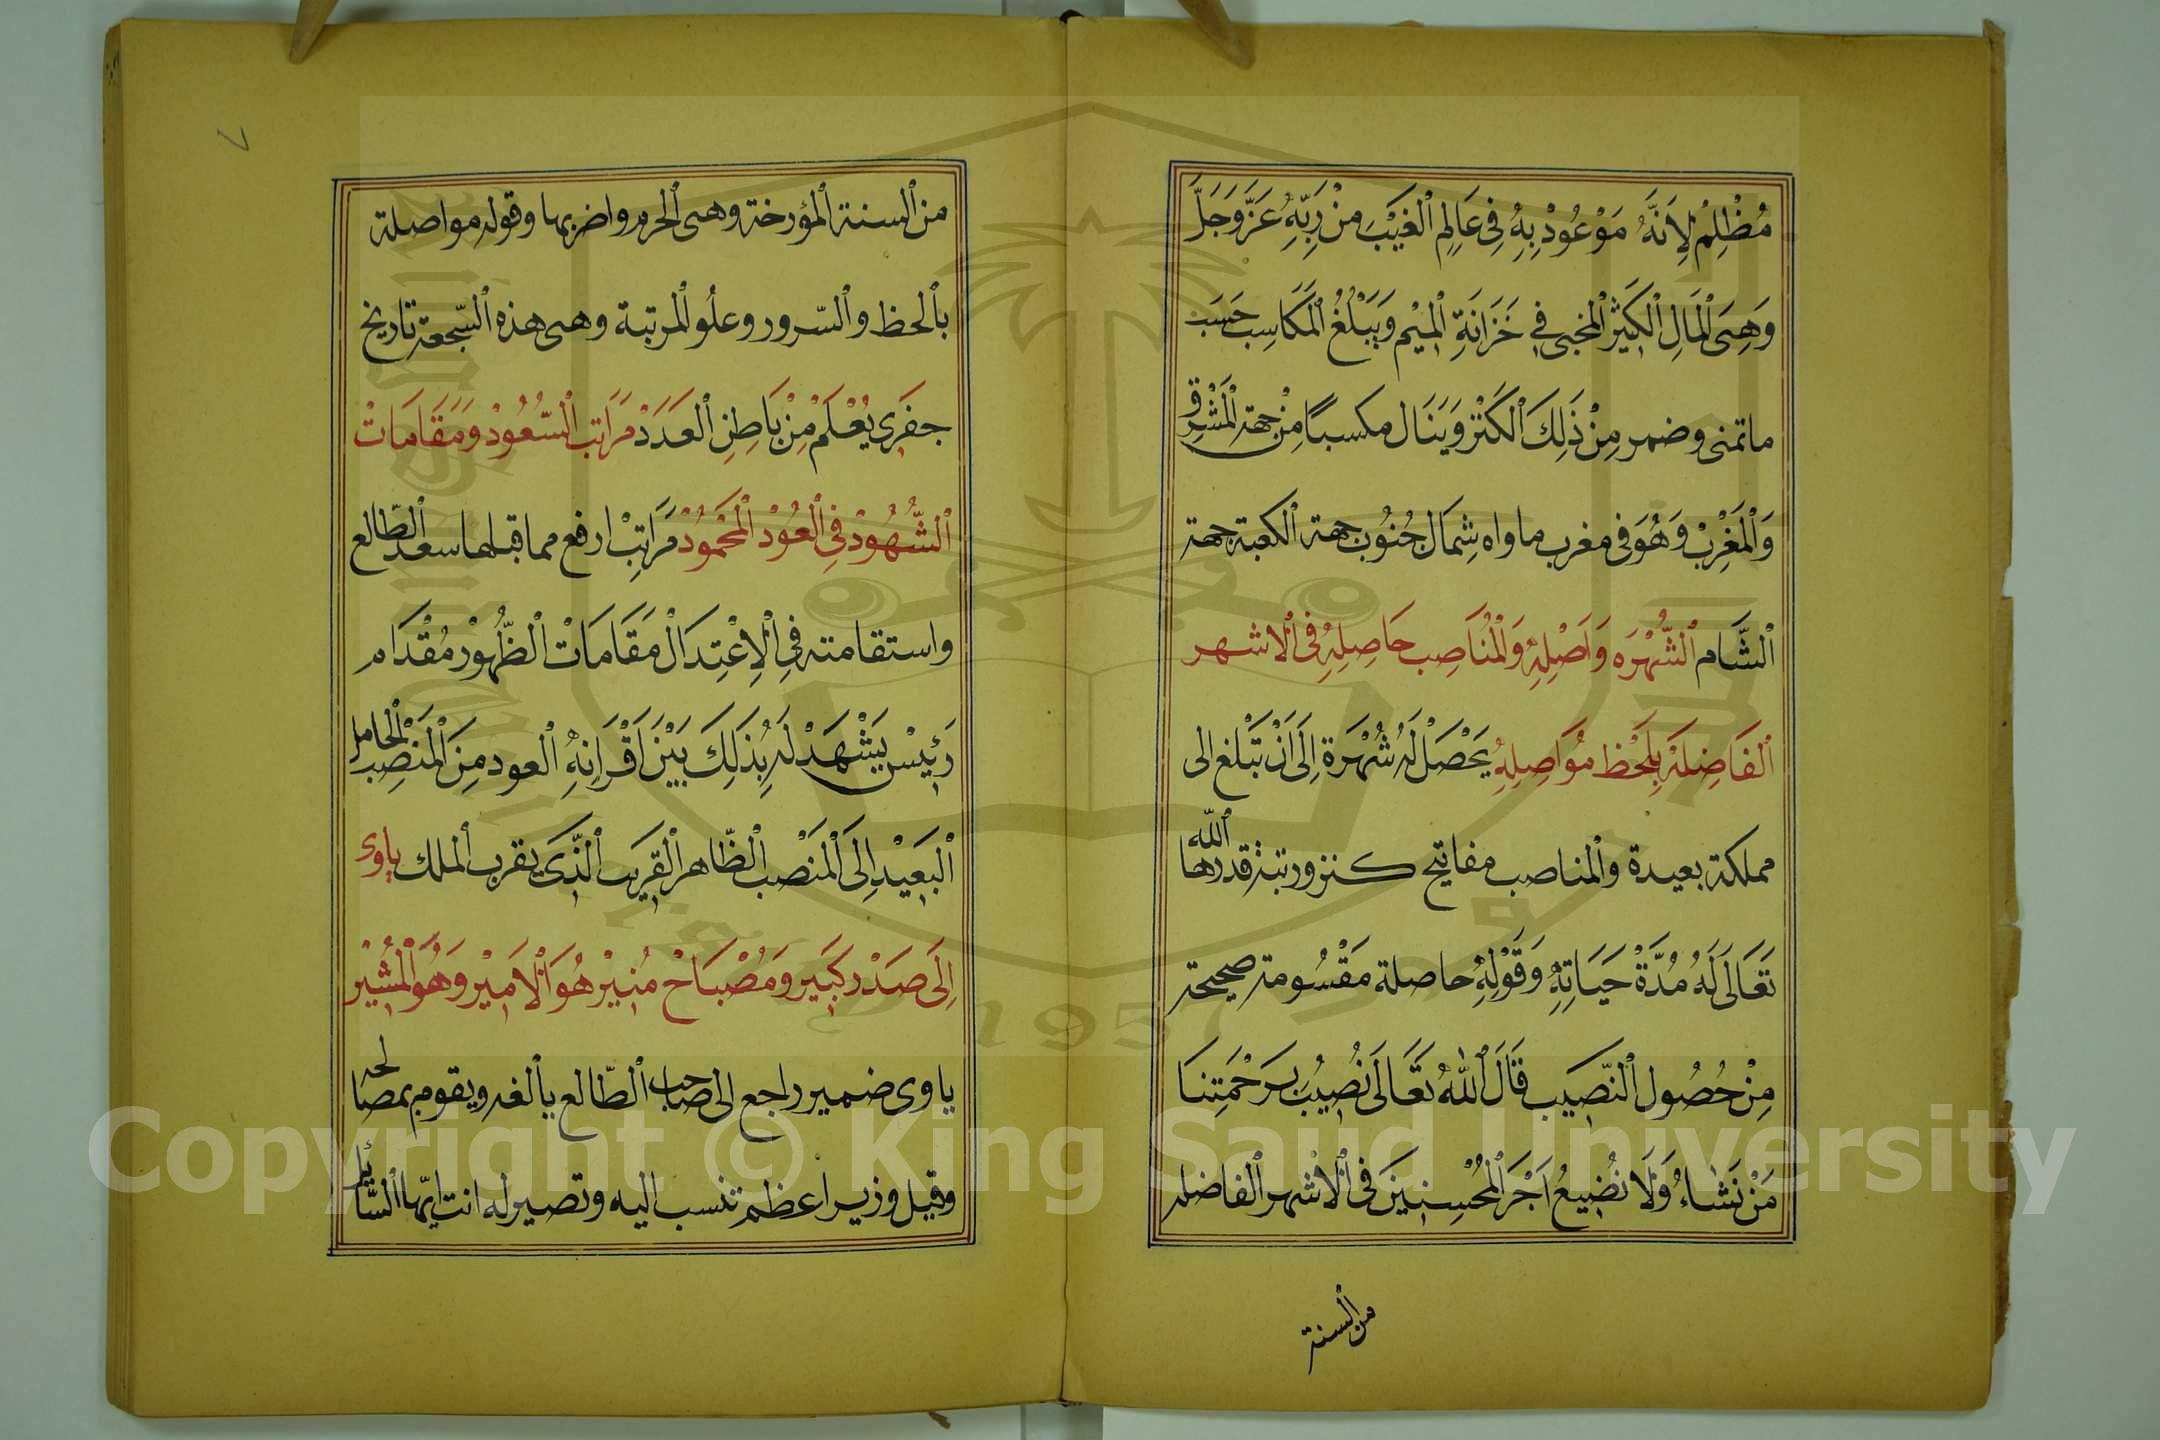 مُظْلِمْ لِاَنَّهُ مَوْعُودْ بِهِ فِى عَالِمِ الْغَيْبَ مِنْ رَبِّهِ عَزَّ وَجَلَّ
وَهِىَ الْمَالِ الْكَثِيْرْ الْمَخْبِى فِى خَزَانَةِ الْمِيْمِ وَيَبْلُغُ الْمَكَاسِبَ حَسَبَ
ماتمنى وضمر مِنْ ذَلِكَ الْكَنْز وَيَنَال مكسبًا مِنْ جهة الْمَشْرِقْ
وَالْمَغْرِبْ وَهُوَ فى مغرب ماواه شِمَال جُنُوب جهة الكعبة جهة
الشَّام الشُّهْرَه وَاَصْلِهِ وَالْمُنَاصِب حَاصِلِهِ فى الاشهر
الْفَاضِلَهْ بِلَحْظ مُوَاصِلِهِ يَحْصَلْ لَهُ شُهْرَة اِلَى اَنْ تَبْلغ الى
مملكة بعيدة والمناصب مفاتيح كنز ورتبة قدرها الله
تَعَالَى لَهُ مُدَّةْ حَيَاتِهِ وَقَوْلِهِ حاصلة مَقْسُومة صحيحة
مِنْ حُصُول النَّصِيَب قَالَ اللهُ تَعَالَى نُصِيبُ بِرَحْمَتِنَا
مَنْ نَشَاءُ وَلَا نُضِيعُ اَجْرَ الْمُحْسِنِينَ فى الْاشْهر الفاضله
من السنة
٧
من السنة المؤرخة وهى الحرم واضربها وقوله مواصلة
بالحظ والسّرور وعلُو المرتبة وهى هذه السّجعة تاريخ
جفَرى يُعْلَمْ مِنْ بَاطِنِ الْعَدَدْ مَرَاتب السُّعُودْ وَمَقَامَاتْ
الشُّهُودْ فِى الْعُودْ الْمَحْمُودْ مَرَاتِبْ ارفع مما قبلها سعد الطّالع
واستقامته فِى الْاِعْتِدَالْ مَقَامَاتْ الظُّهُورْ مُقْدَام
رَئِيسْ يَشْهَدْ لَه بِذَلِكَ بَيْنَ اَقْرَانِهِ العود مِنَ الْمَنْصِبْ الْخَامل
الْبَعَيْدِ اِلَى الْمَنْصْب الظّاهر الْقَرِيَب الَّذِى يقرب الملك ياوى
اِلَى صَدْر كَبَيِر وَمُصْبَاحْ مُنِيرْ هُوَ الْاَمَيْر وَهُوَ الْمُشِيْر
ياوى ضمير راجع الى صاحب الطّالع يالفه ويقوم بمصالحه
وقيل وزير اعظم تنسب اليه وتصير له انت ايّها السَّائل
Copyright © King Saud University
1957